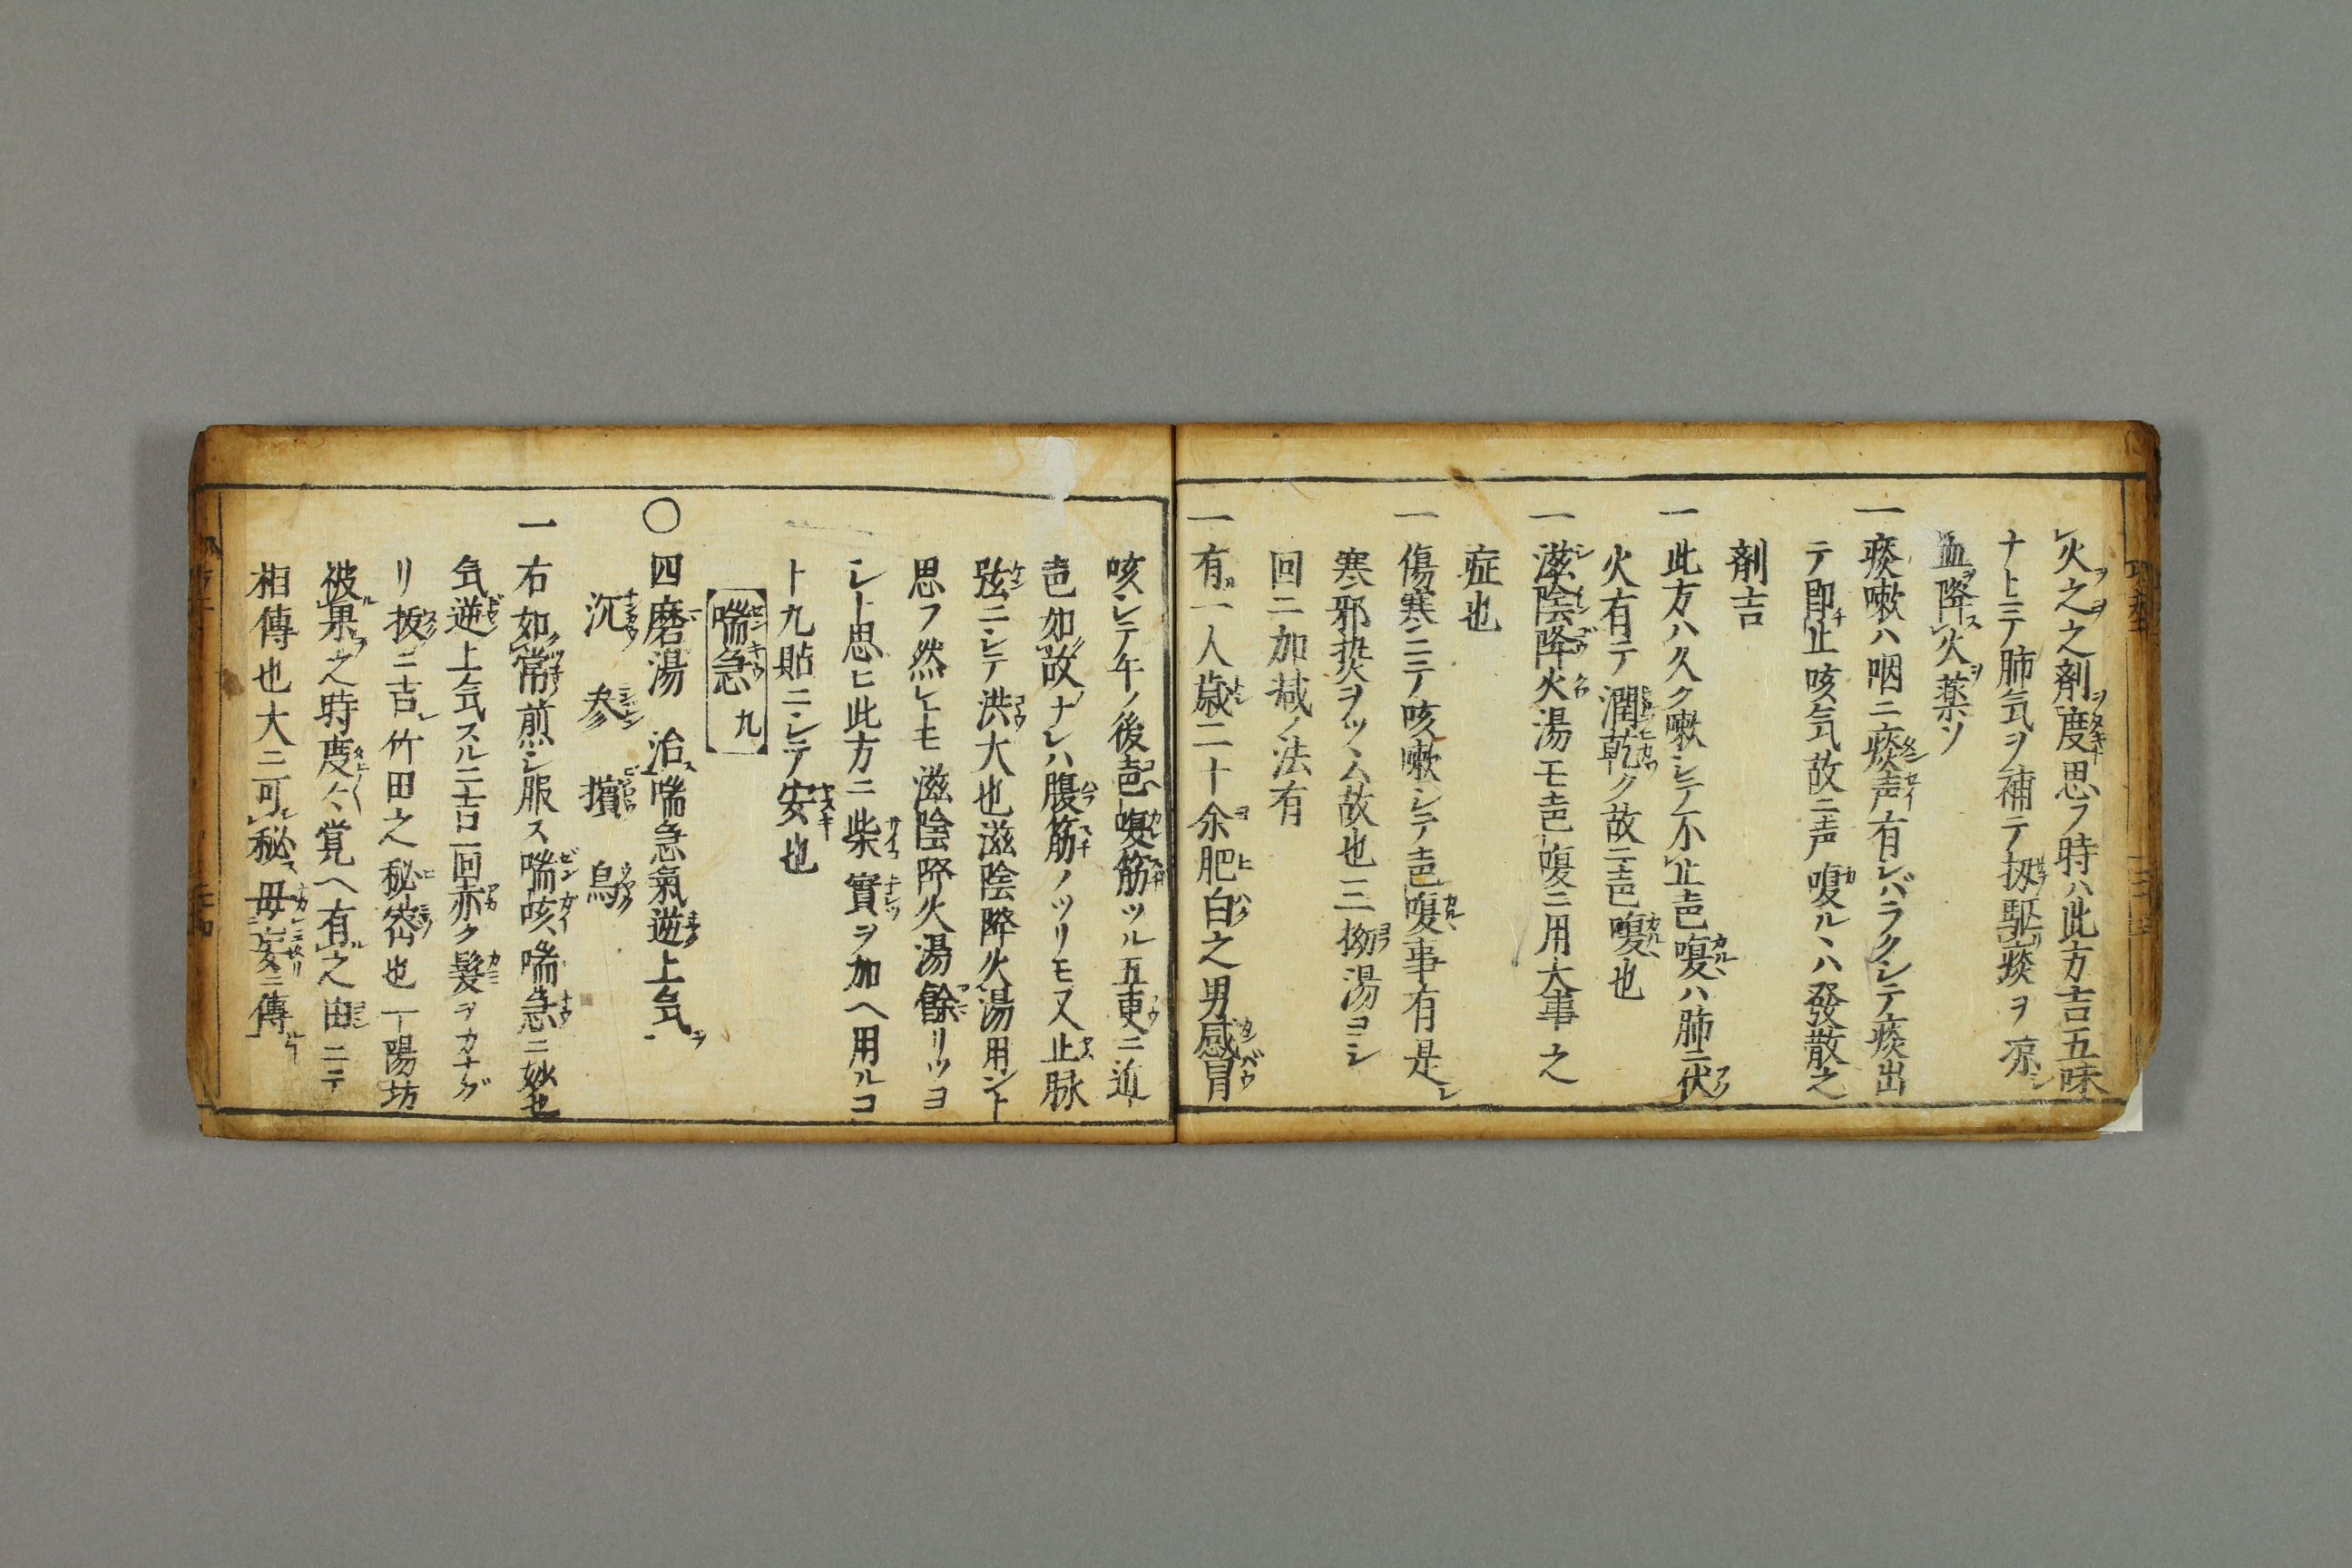 火之之剤度思フ時ハ此方吉五味
ナトニテ肺気ヲ補テ扱駆痰ヲ凉
血降火薬ソ
一痰嗽ハ咽ニ痰声有シバラクシテ痰出
テ即止咳気故ニ声嗄ル丶ハ發散之
剤吉
一此方ハ久ク嗽シテ不止声嗄ハ肺ニ伏
火有テ潤乾ク故ニ声嗄也
一滋陰降火湯モ声嗄ニ用大事之
症也
一傷寒ニテ咳嗽シテ声嗄事有是
寒邪熱ヲツヽム故也三拗湯ヨシ
回ニ加減ノ法有
一有一人歳二十余肥白之男感冒
咳シテ午ノ後声嗄筋ツル五更ニ近
声如故ナレハ腹筋ノツリモ又止脉
弦ニシテ洪大也滋陰降火湯用ント
思フ然レトモ滋陰降火湯餘リツヨ
シト思ヒ此方ニ柴實ヲ加ヘ用ルコ
ト九貼ニシテ安也
喘急 九
〇四磨湯 治喘急氣逆上気
沉 参 檳 烏
一右如常煎シ服ス喘咳喘急ニ妙也
気逆上気スルニ吉回赤ク髪ヲカナグ
リ扱ニ吉竹田之秘密也一陽坊
彼果之時度々覚ヘ有之由ニテ
相傳也大ニ可秘毋妄ニ傳